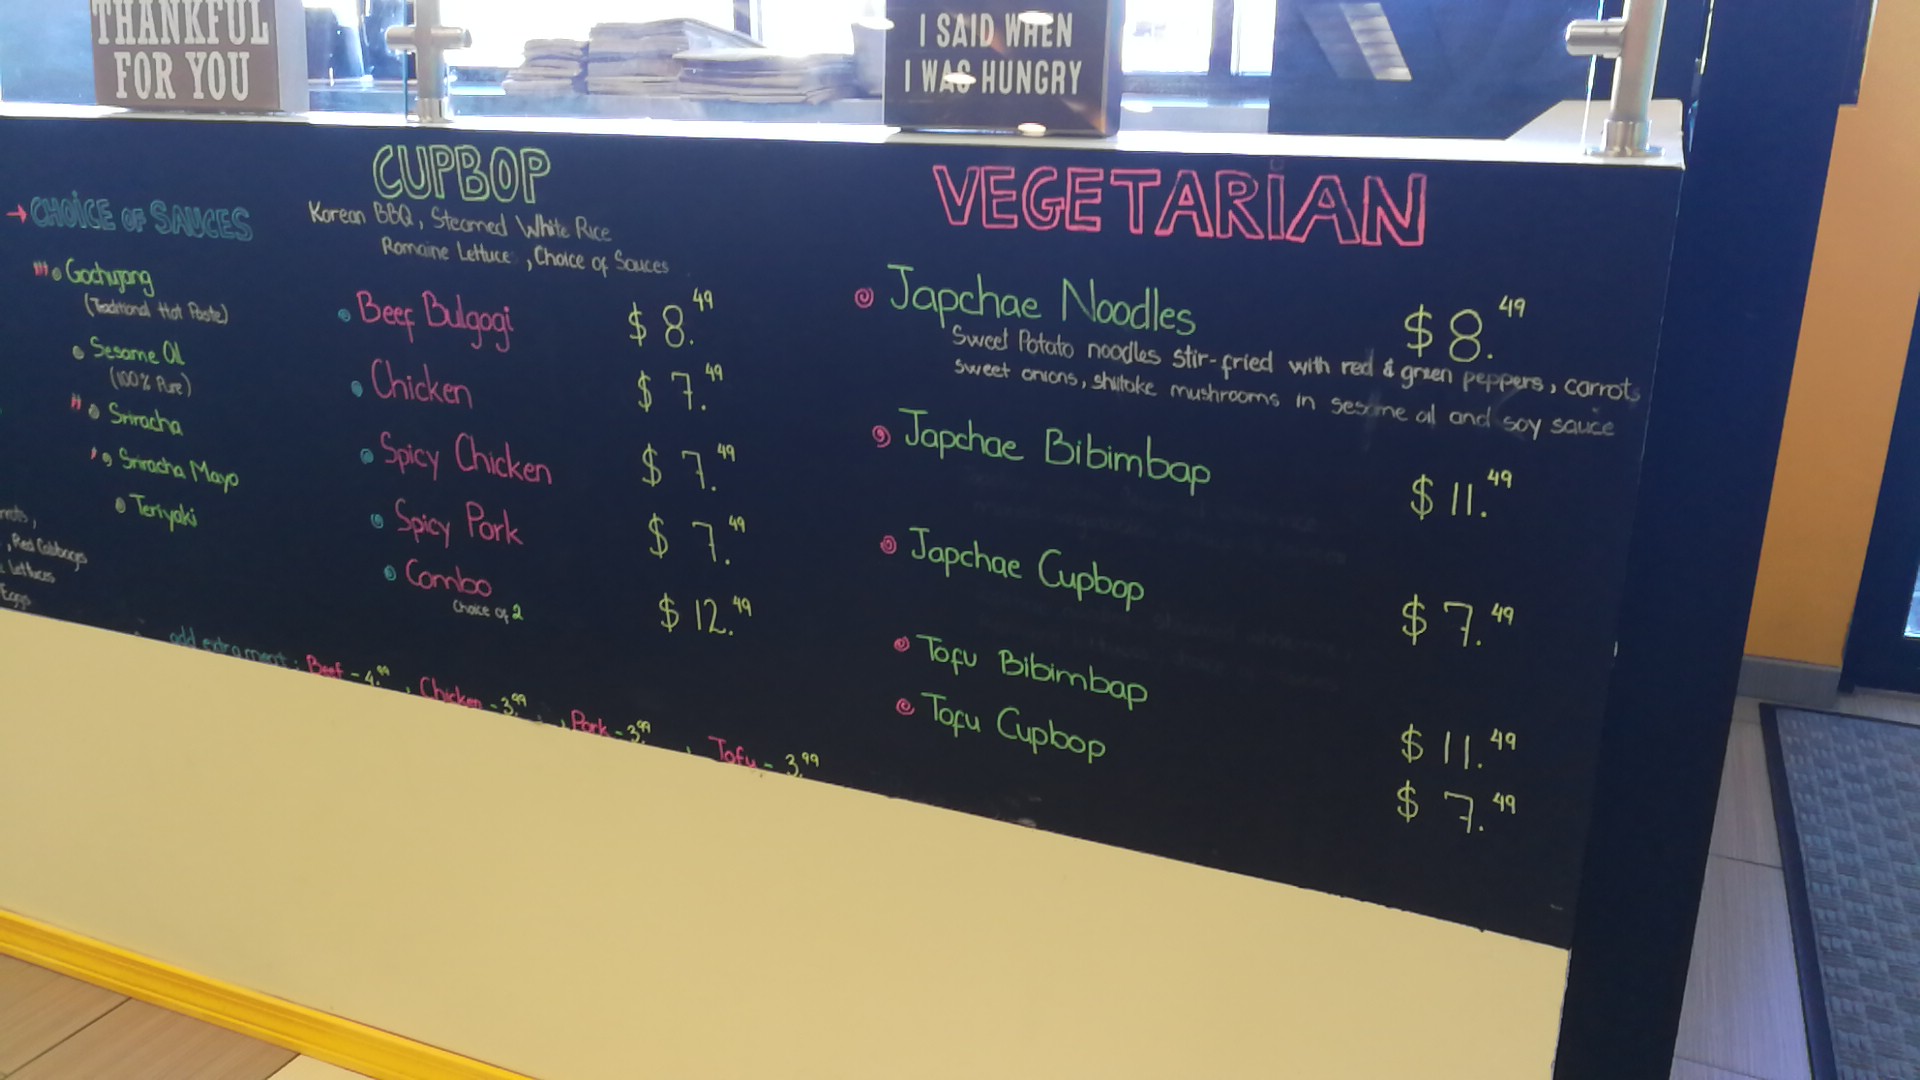 THANKFUL
FOR YOU
I SAID WHEN
I WAS HUNGRY
→ CHOICE OF SAUCES
Gochujang
(Traditional Hot Paste)
Sesame Oil
(100% Pure)
Sriracha
Sriracha Mayo
Teriyaki
, Red Cabbage
Lettuces
Eggs
CUPBOP
Korean BBQ, Steamed White Rice
Romaine Lettuce, Choice of Sauces
Beef Bulgogi $ 8.49
Chicken $ 7.49
Spicy Chicken $ 7.49
Spicy Pork $ 7.49
Combo $ 12.49
Choice of 2
add extra meat: Beef - 4.99, Chicken - 3.99, Pork - 3.99, Tofu - 3.99
VEGETARIAN
Japchae Noodles $ 8.49
Sweet Potato noodles stir-fried with red & green peppers, carrots
sweet onions, shiitake mushrooms in sesame oil and soy sauce
Japchae Bibimbap $ 11.49
Japchae Cupbop $ 7.49
Tofu Bibimbap $ 11.49
Tofu Cupbop $ 7.49